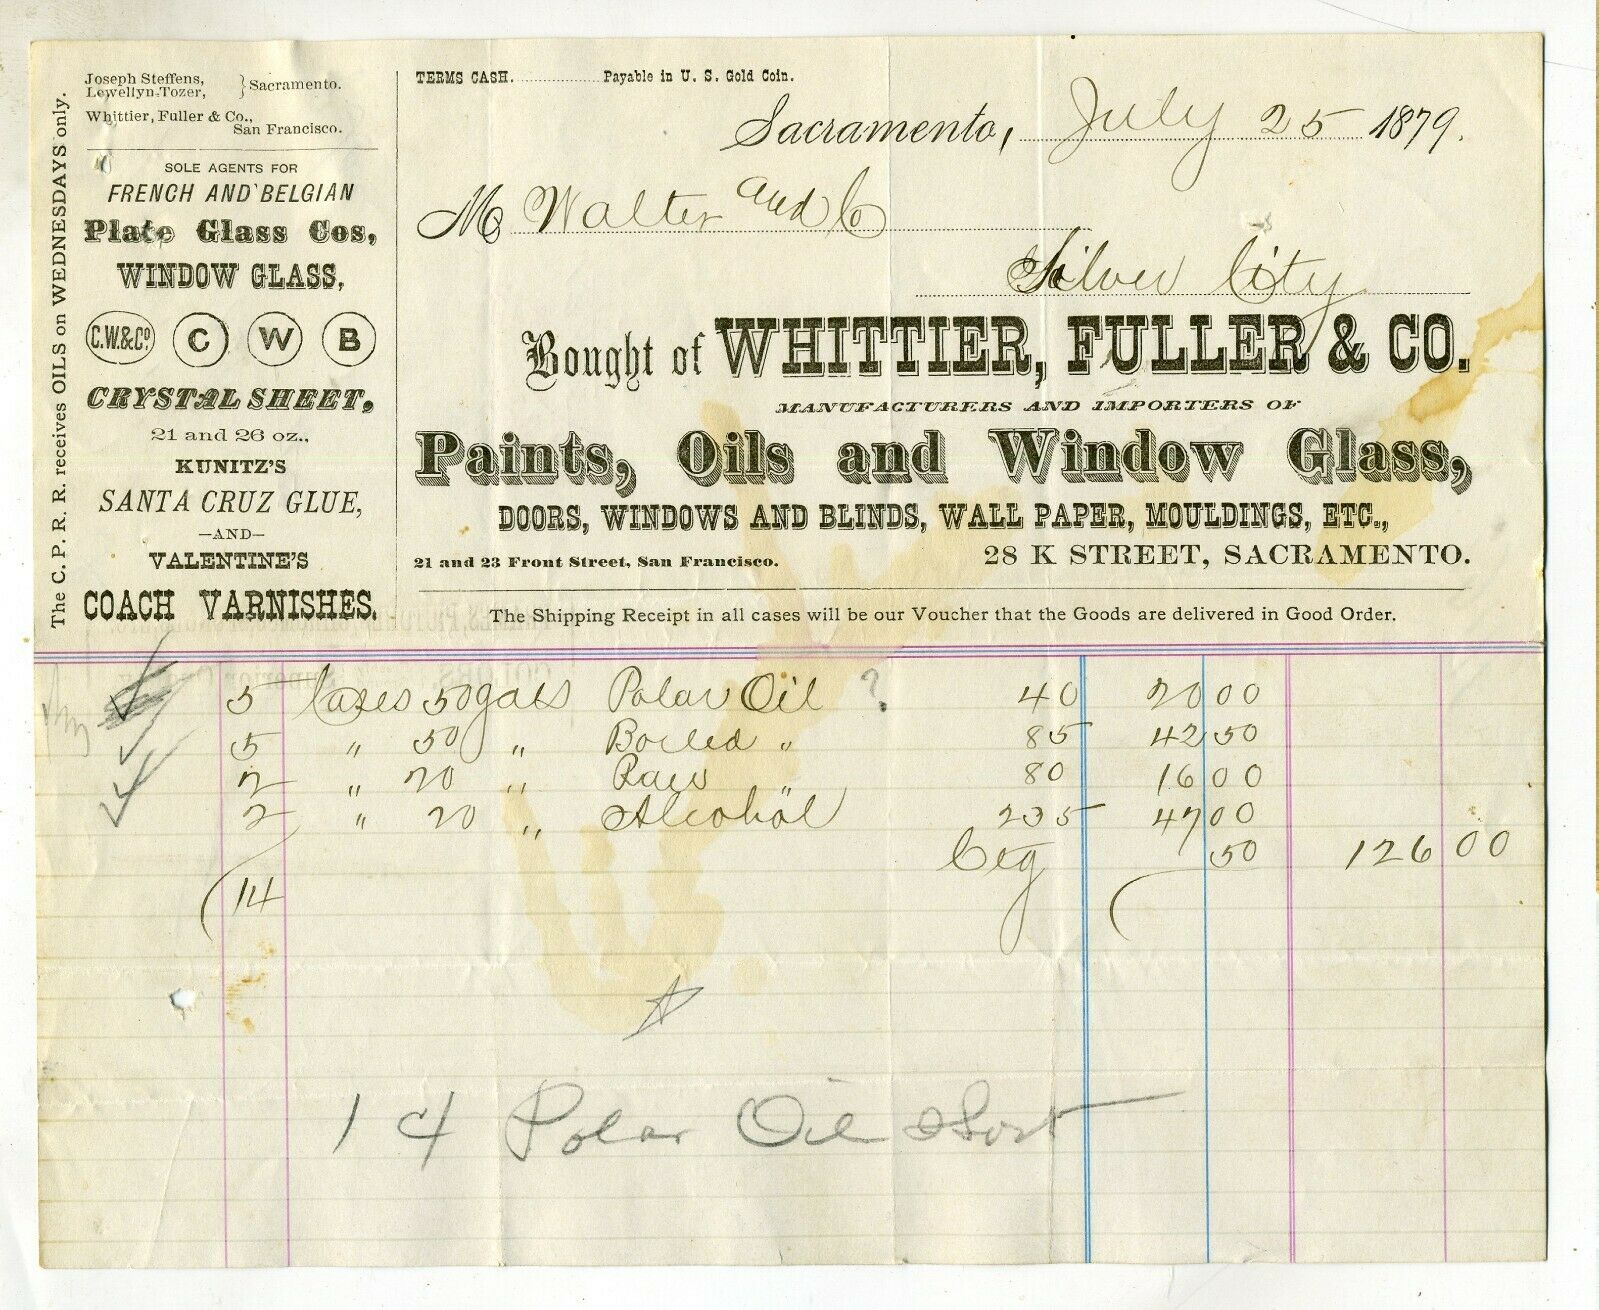 The C. P. R. R. receives OILS on WEDNESDAYS only.
Joseph Steffens,
Lewellyn Tozer, } Sacramento.
Whittier, Fuller & Co.,
San Francisco.
SOLE AGENTS FOR
FRENCH AND BELGIAN
Plate Glass Cos,
WINDOW GLASS,
C.W.&Co. C W B
CRYSTAL SHEET,
21 and 26 oz.,
KUNITZ'S
SANTA CRUZ GLUE,
—AND—
VALENTINE'S
COACH VARNISHES.
TERMS CASH. Payable in U. S. Gold Coin.
Sacramento, July 25 1879.
M Walter and Co
Silver City
Bought of WHITTIER, FULLER & CO.
MANUFACTURERS AND IMPORTERS OF
Paints, Oils and Window Glass,
DOORS, WINDOWS AND BLINDS, WALL PAPER, MOULDINGS, ETC.,
21 and 23 Front Street, San Francisco. 28 K STREET, SACRAMENTO.
The Shipping Receipt in all cases will be our Voucher that the Goods are delivered in Good Order.
5 Cases 50 gals Polar Oil ? 40 20 00
5 " 50 " Boiled " 85 42 50
2 " 20 " Raw " 80 16 00
2 " 20 " Alcohol 235 47 00
Ctg 50 126 00
14
Polar Oil Short